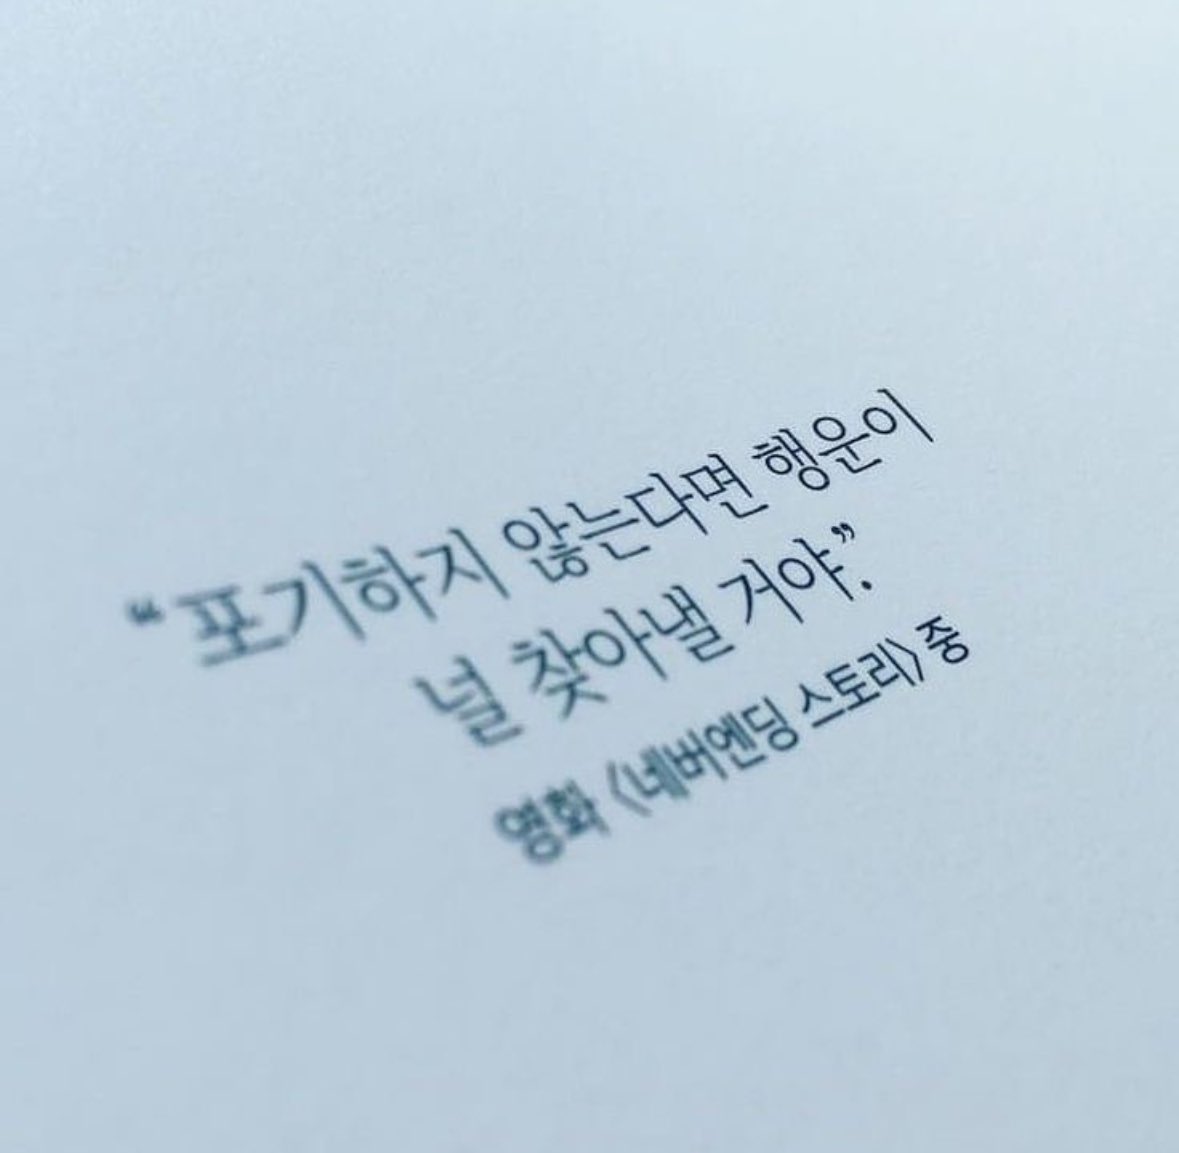 “포기하지 않는다면 행운이
널 찾아낼 거야.”
영화 〈네버엔딩 스토리〉 중